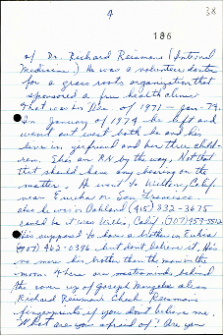 4
38
186
of Dr. Richard Reimann (Internal
Medicine). He was a volunteer doctor
for a grass roots organization that
sponsored a free health clinic
that was in Dec of 1971 - Jan - 74.
In January of 1974 he left and
went out west both he and his
live in girlfriend and her three child-
ren. She's an RN by the way. Not that
that should have any bearing on the
matter. He went to Willits, Calif
near Eureka or San Francisco.
also he was in Oakland (415) 832-3875
and he was Willits, Calif. (707) 459-
He supposed to have a brother in Eukia
(707) 462-0386 but don't believe it. He's
no more his brother than the man in the
moon. There are masterminds behind
the cover up of Joseph Mengele alias
Richard Reimann. Check Reimann
fingerprints if you don't believe me.
What are you afraid of? Are you